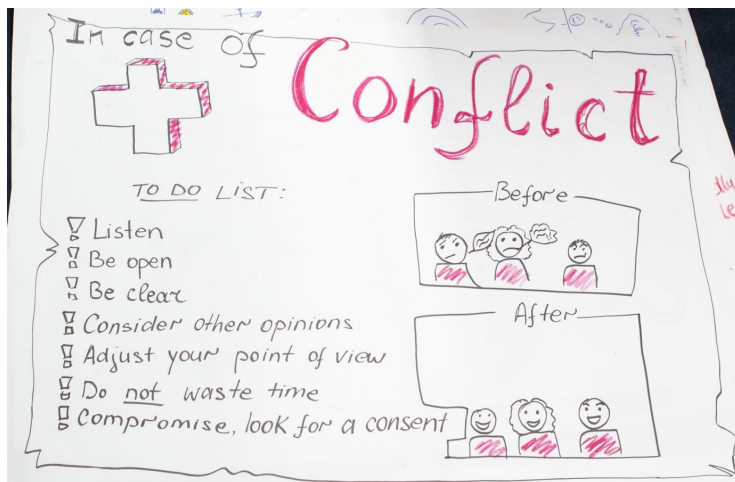 In case of
Conflict
TO DO LIST:
Listen
Be open
Be clear
Consider other opinions
Adjust your point of view
Do not waste time
Compromise, look for a consent
Before
After